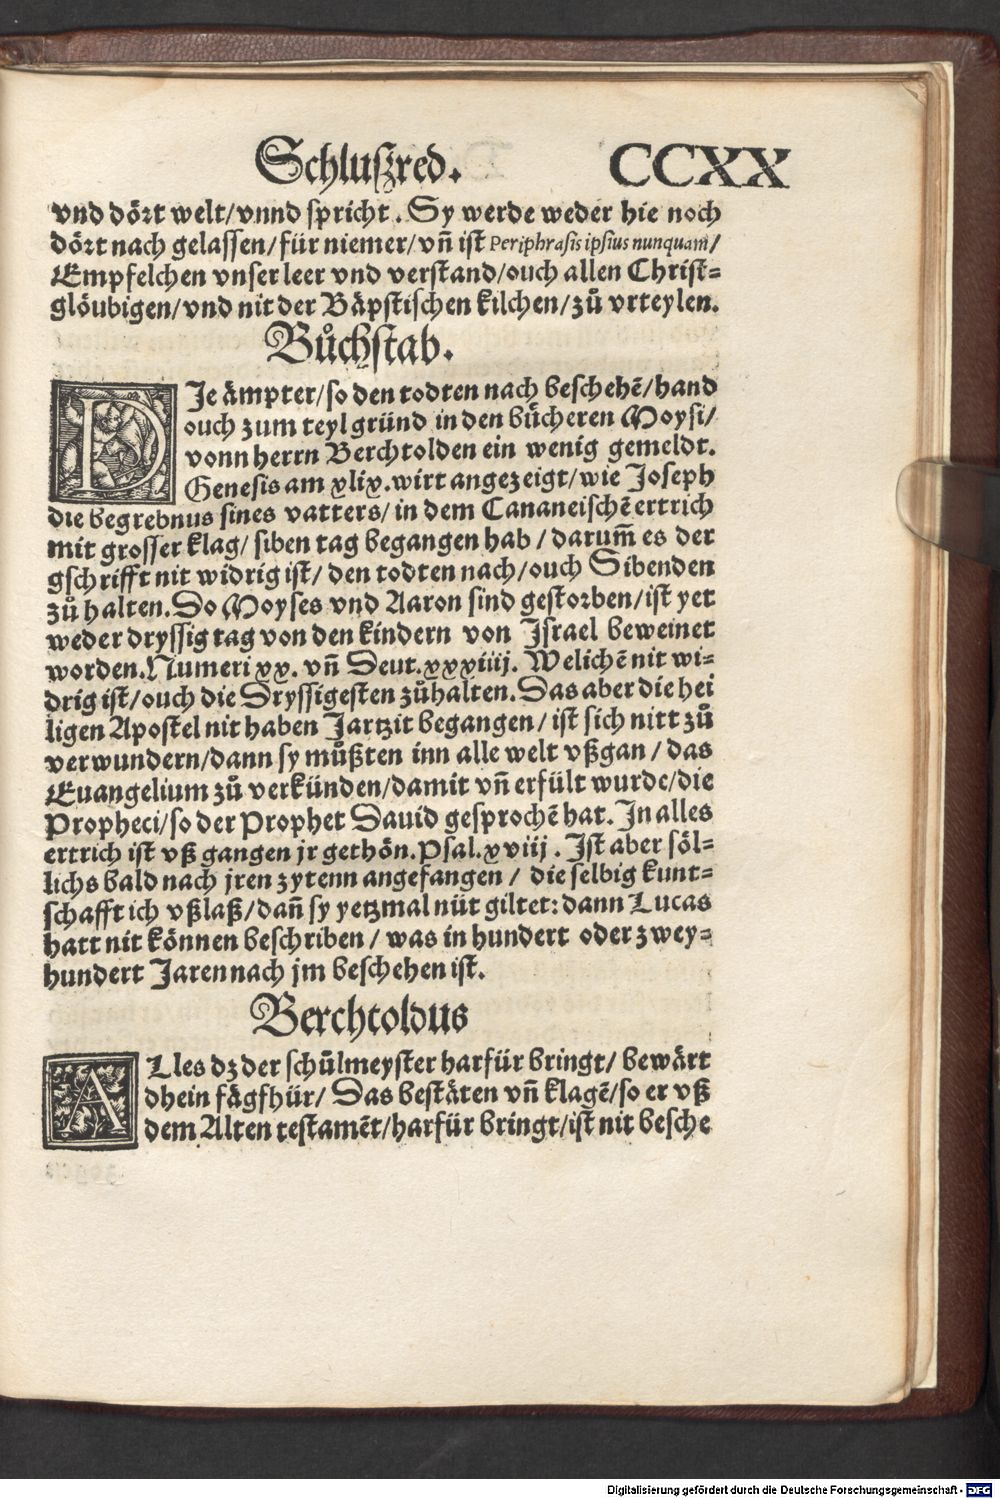 Schlußred. CCXX
vnd dört welt/vnnd spricht. Sy werde weder hie noch
dört nach gelassen/für niemer/vn̄ ist Periphrasis ipsius nunquam/
Empfelchen vnser leer vnd verstand/ouch allen Christ-
glöubigen/vnd nit der Bäpstischen kilchen/zů vrteylen.
Bůchstab.
DJe ämpter/so den todten nach beschehē/hand
ouch zum teyl gründ in den bücheren Moysi/
vonn herrn Berchtolden ein wenig gemeldt.
Genesis am xlix. wirt angezeigt/wie Joseph
die begrebnus sines vatters/in dem Cananeischē ertrich
mit grosser klag/siben tag begangen hab/darum̄ es der
gschrifft nit widrig ist/den todten nach/ouch Sibenden
zů halten. Do Moyses vnd Aaron sind gestorben/ist yet
weder dryssig tag von den kindern von Jsrael beweinet
worden. Numeri xx. vn̄ Deut. xxxiiij. Welichē nit wi-
drig ist/ouch die Dryssigesten zůhalten. Das aber die hei
ligen Apostel nit haben Jartzit begangen/ist sich nitt zů
verwundern/dann sy můßten inn alle welt vßgan/das
Euangelium zů verkünden/damit vn̄ erfült wurde/die
Propheci/so der Prophet Dauid gesprochē hat. Jn alles
ertrich ist vß gangen jr gethön. Psal. xviij. Jst aber söl-
lichs bald nach jren zytenn angefangen/die selbig kunt-
schafft ich vßlaß/dan̄ sy yetzmal nüt giltet: dann Lucas
hatt nit können beschriben/was in hundert oder zwey-
hundert Jaren nach jm beschehen ist.
Berchtoldus
ALles dz der schůlmeyster harfür bringt/bewärt
dhein fägfhür/Das bestäten vn̄ klagē/so er vß
dem Alten testamēt/harfür bringt/ist nit besche
Digitalisierung gefördert durch die Deutsche Forschungsgemeinschaft - DFG